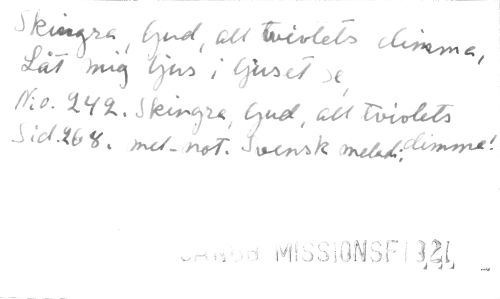 Skingra, Gud, all tvivlets dimma,
Låt mig ljus i ljuset se,
N:o. 242. Skingra, Gud, all tvivlets dimma!
Sid. 268. mel-not. Svensk melodi.
MISSIONSF